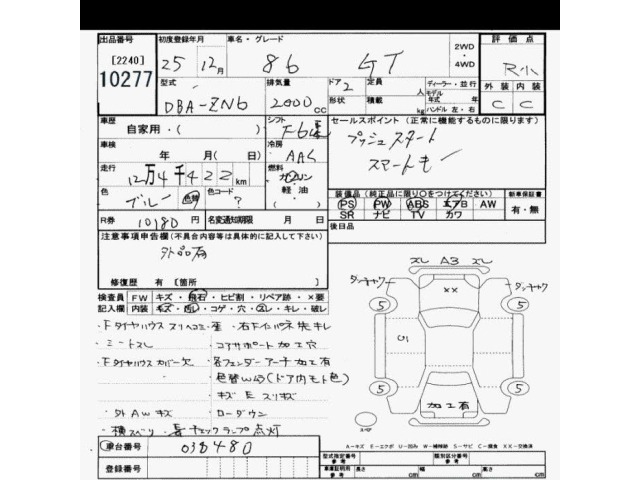 出品番号 初度登録年月 車名・グレード 2WD・4WD 評価点
[2240] 10277 25年 12月 86 GT R小
型式 排気量 ドア 2 定員 人 ディーラー・並行
DBA-ZN6 2000 cc 形状 積載 kg モデル年式 年 ハンドル 左・右
外装 内装
C C
車歴 自家用・( ) シフト F6速
セールスポイント (正常に機能するものに限ります)
プッシュスタート
スマートキー
車検 年 月( 日) 冷房 AAC
走行 12万4千422km 燃料 ガソリン 軽油・
色 ブルー 色替 色コード ?
装備品 (純正品に限り○をつけてください) 新車保証書
PS PW ABS エアB AW 有・無
SR ナビ TV カワ
R券 10180円 名変通知期限 月 日 後日品
注意事項申告欄(不具合内容等は具体的に記入して下さい)
外品有
修復歴 有 [箇所 ]
ズレ A3 ズレ
検査員記入欄 FW キズ・飛石・ヒビ割・リペア跡・×要
内装 キズ・汚レ・コゲ・穴・スレ・キレ・破レ
××
5 5
・Fタイヤハウス
・シートスレ ・コアサポート加工穴
・Fタイヤハウスカバー欠 各フェンダーアーチ加工有
色替W43(ドア内モト色)
5 5
加工有
・外AWキズ ・ローダウン
・横スベリ チェックランプ点灯
A-キズ E-エクボ U-凹み W-補修跡 S-サビ C-腐食 XX-交換済
車台番号 038480
型式指定番号 参考 類別区分番号 参考
登録番号 車庫証明用 参考 長さ cm 幅 cm 高さ cm